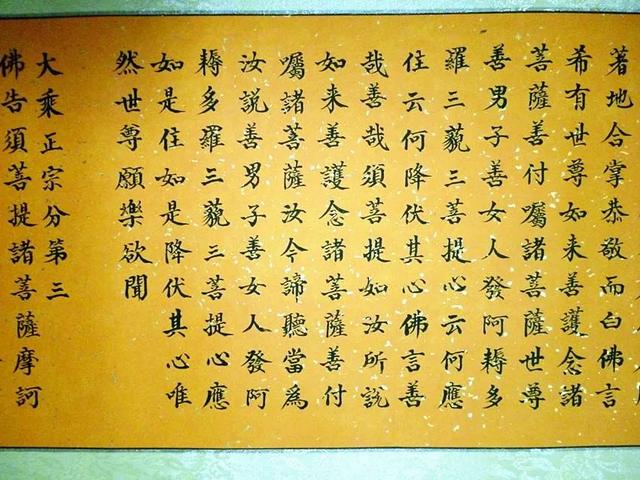 著地合掌恭敬而白佛言
希有世尊如来善護念諸
菩薩善付囑諸菩薩世尊
善男子善女人發阿耨多
羅三藐三菩提心云何應
住云何降伏其心佛言善
哉善哉須菩提如汝所說
如来善護念諸菩薩善付
囑諸菩薩汝今諦聽當為
汝說善男子善女人發阿
耨多羅三藐三菩提心應
如是住如是降伏其心唯
然世尊願樂欲聞
大乘正宗分第三
佛告須菩提諸菩薩摩訶